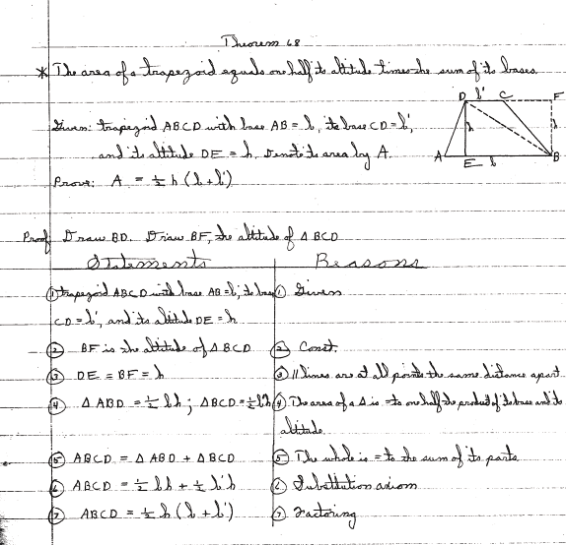 Theorem 68
* The area of a trapezoid equals one half its altitude times the sum of its bases.
D b' C F
Given: trapezoid ABCD with base AB = b, its base CD = b',
h h
and its altitude DE = h. Denote its area by A.
A E b B
Prove: A = ½ h (b + b')
Proof Draw BD. Draw BF, the altitude of △ BCD
Statements Reasons
① trapezoid ABCD with base AB = b; its base ① Given
CD = b', and its altitude DE = h
② BF is the altitude of △ BCD ② Const.
③ DE = BF = h ③ || lines are at all points the same distance apart
④ △ ABD = ½ bh ; △BCD = ½ b'h ④ The area of a △ is = to one half the product of its base and its
altitude
⑤ ABCD = △ ABD + △ BCD ⑤ The whole is = to the sum of its parts
⑥ ABCD = ½ bh + ½ b'h ⑥ Substitution axiom
⑦ ABCD = ½ h (b + b') ⑦ Factoring